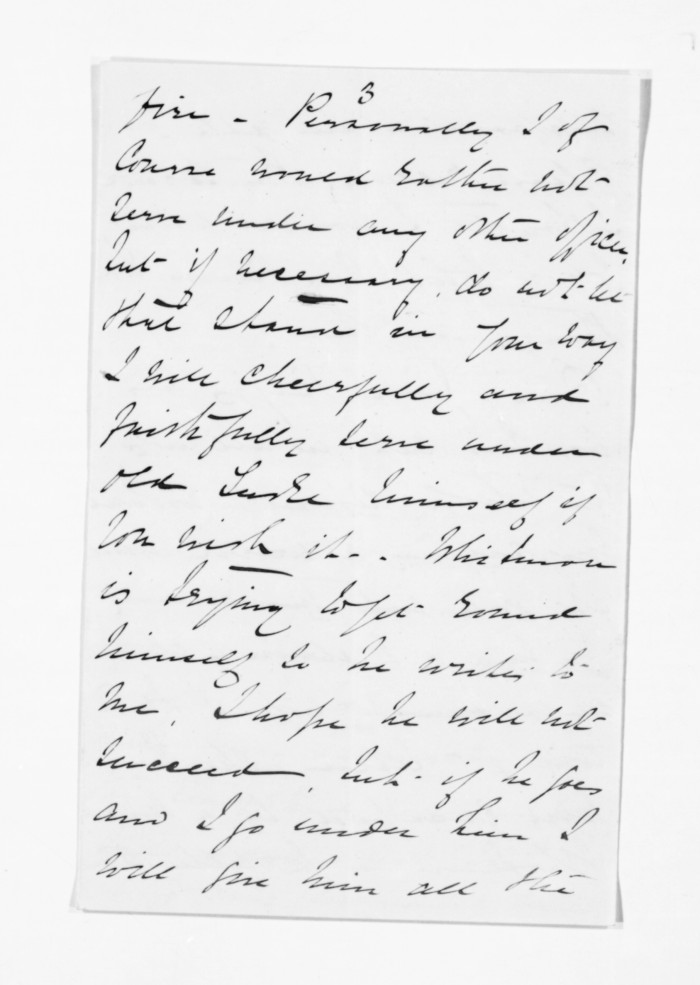 3
fire - Personally I of
Course would rather not
serve under any other officer,
but if necessary, do not let
that stand in your way
I will cheerfully and
faithfully serve under
old himself if
you wish it - Whitmore
is trying to get round
himself so he writes to
me, I hope he will not
succeed, but if he goes
and I go under him I
will give him all the